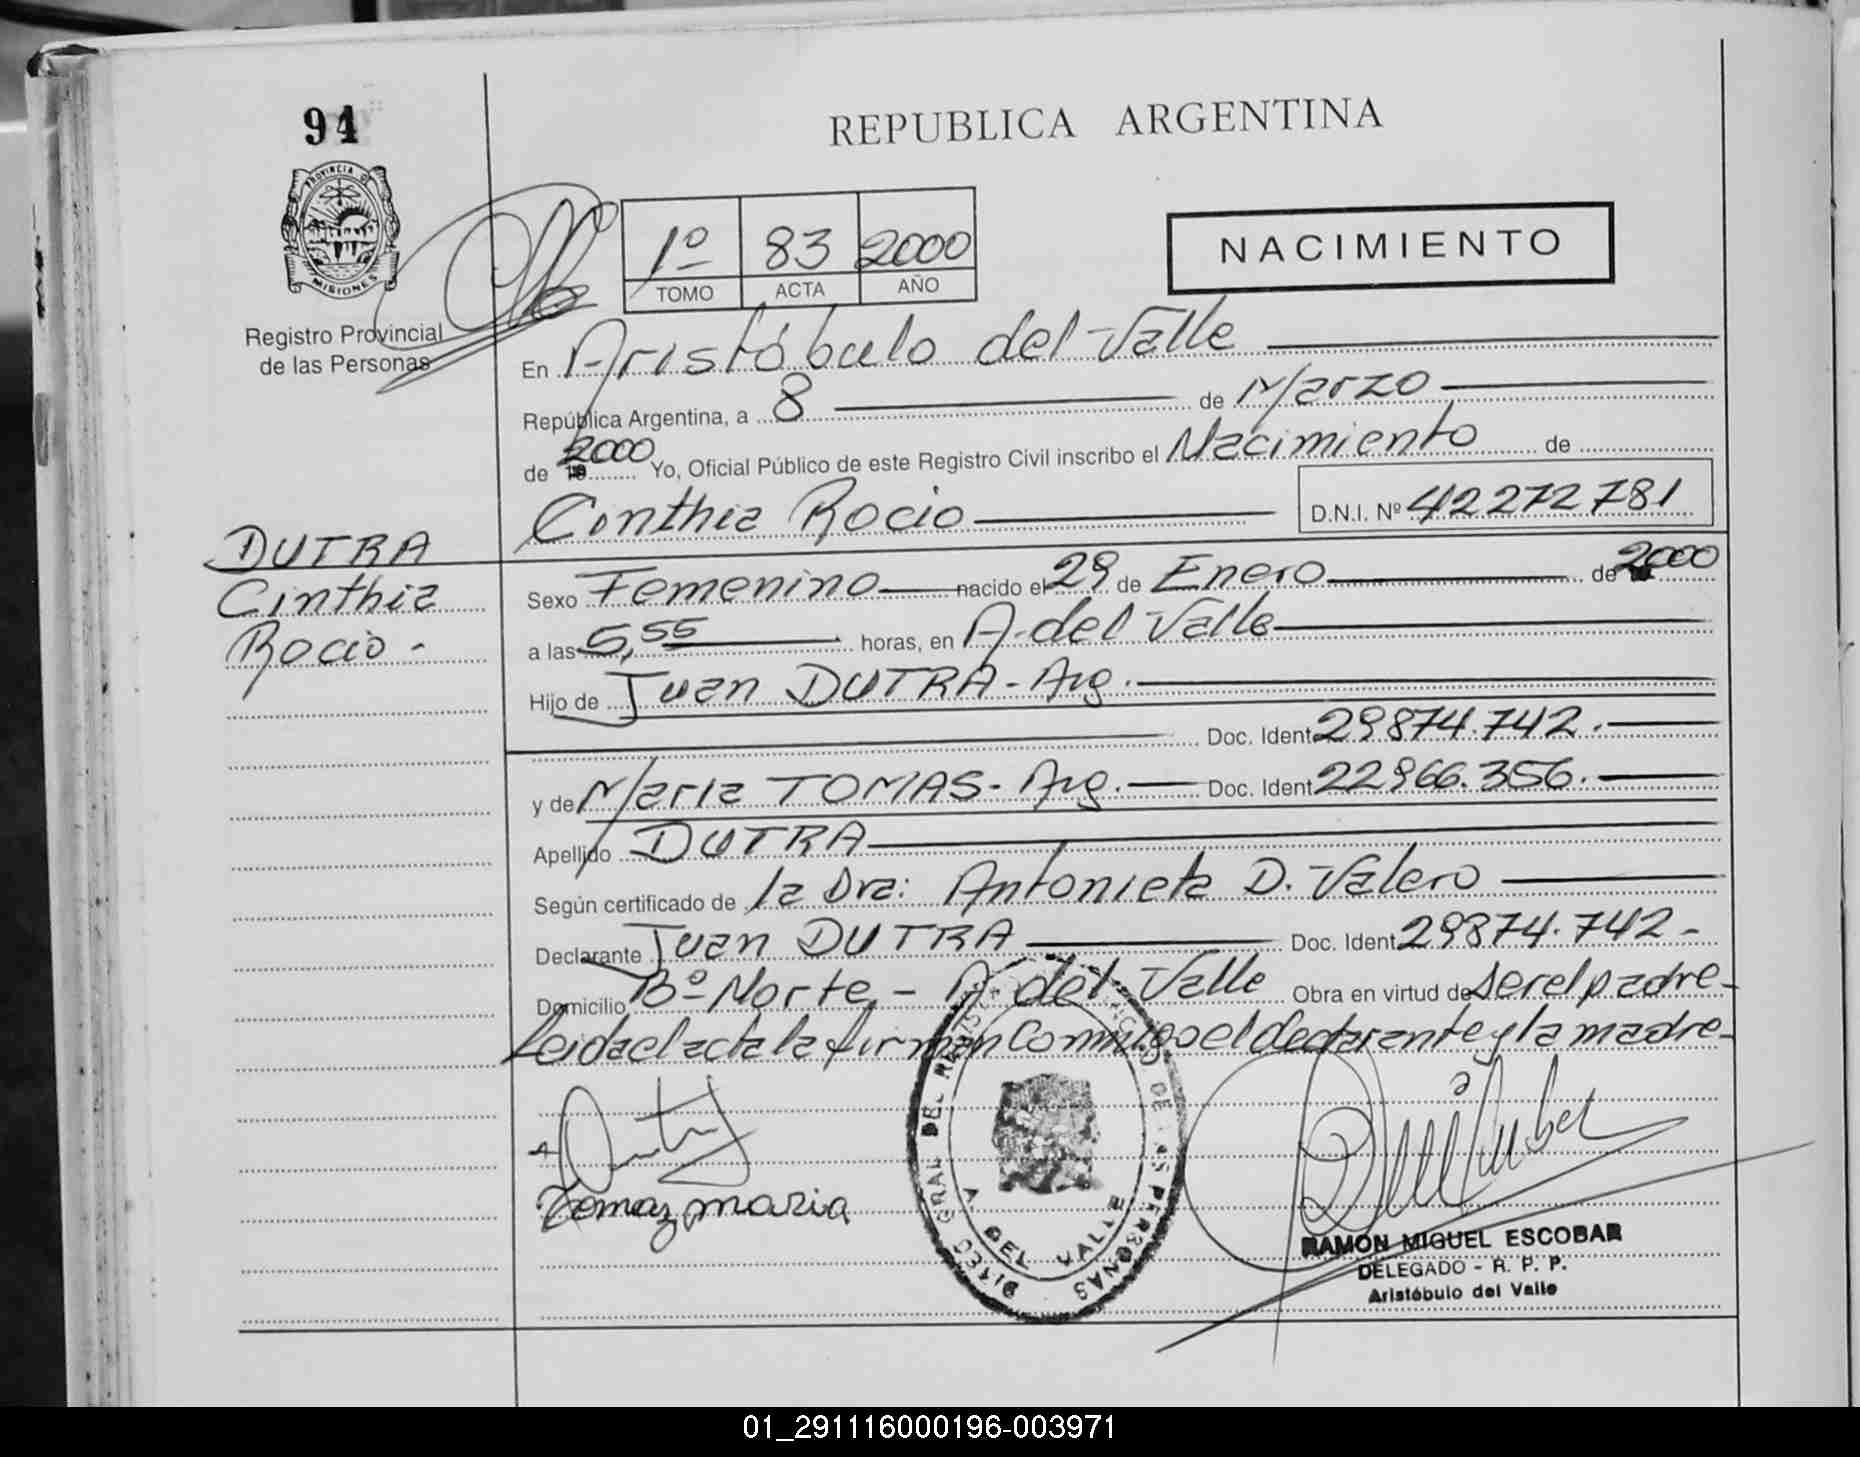 94
REPUBLICA ARGENTINA
PROVINCIA DE
MISIONES
Registro Provincial
de las Personas
1º 83 2000
TOMO ACTA AÑO
NACIMIENTO
En Aristóbulo del Valle
República Argentina, a 8 de Marzo
de 2000 Yo, Oficial Público de este Registro Civil inscribo el Nacimiento de
Cinthia Rocio D.N.I. Nº 42272781
DUTRA
Cinthia
Rocio -
Sexo Femenino nacido el 29 de Enero de 2000
a las 5,55 horas, en A. del Valle
Hijo de Juan DUTRA - Arg.
Doc. Ident 29874.742.
y de Maria TOMAS - Arg. Doc. Ident 22966.356.
Apellido DUTRA
Según certificado de la Dra: Antonieta D. Valero
Declarante Juan DUTRA Doc. Ident 29874.742 -
Domicilio Bº Norte - A. del Valle Obra en virtud de ser el padre -
Leida el acta la firman conmigo el declarante y la madre -
Tomaz maria
A DEL VALLE
RAMON MIGUEL ESCOBAR
DELEGADO - R. P. P.
Aristóbulo del Valle
01_291116000196-003971